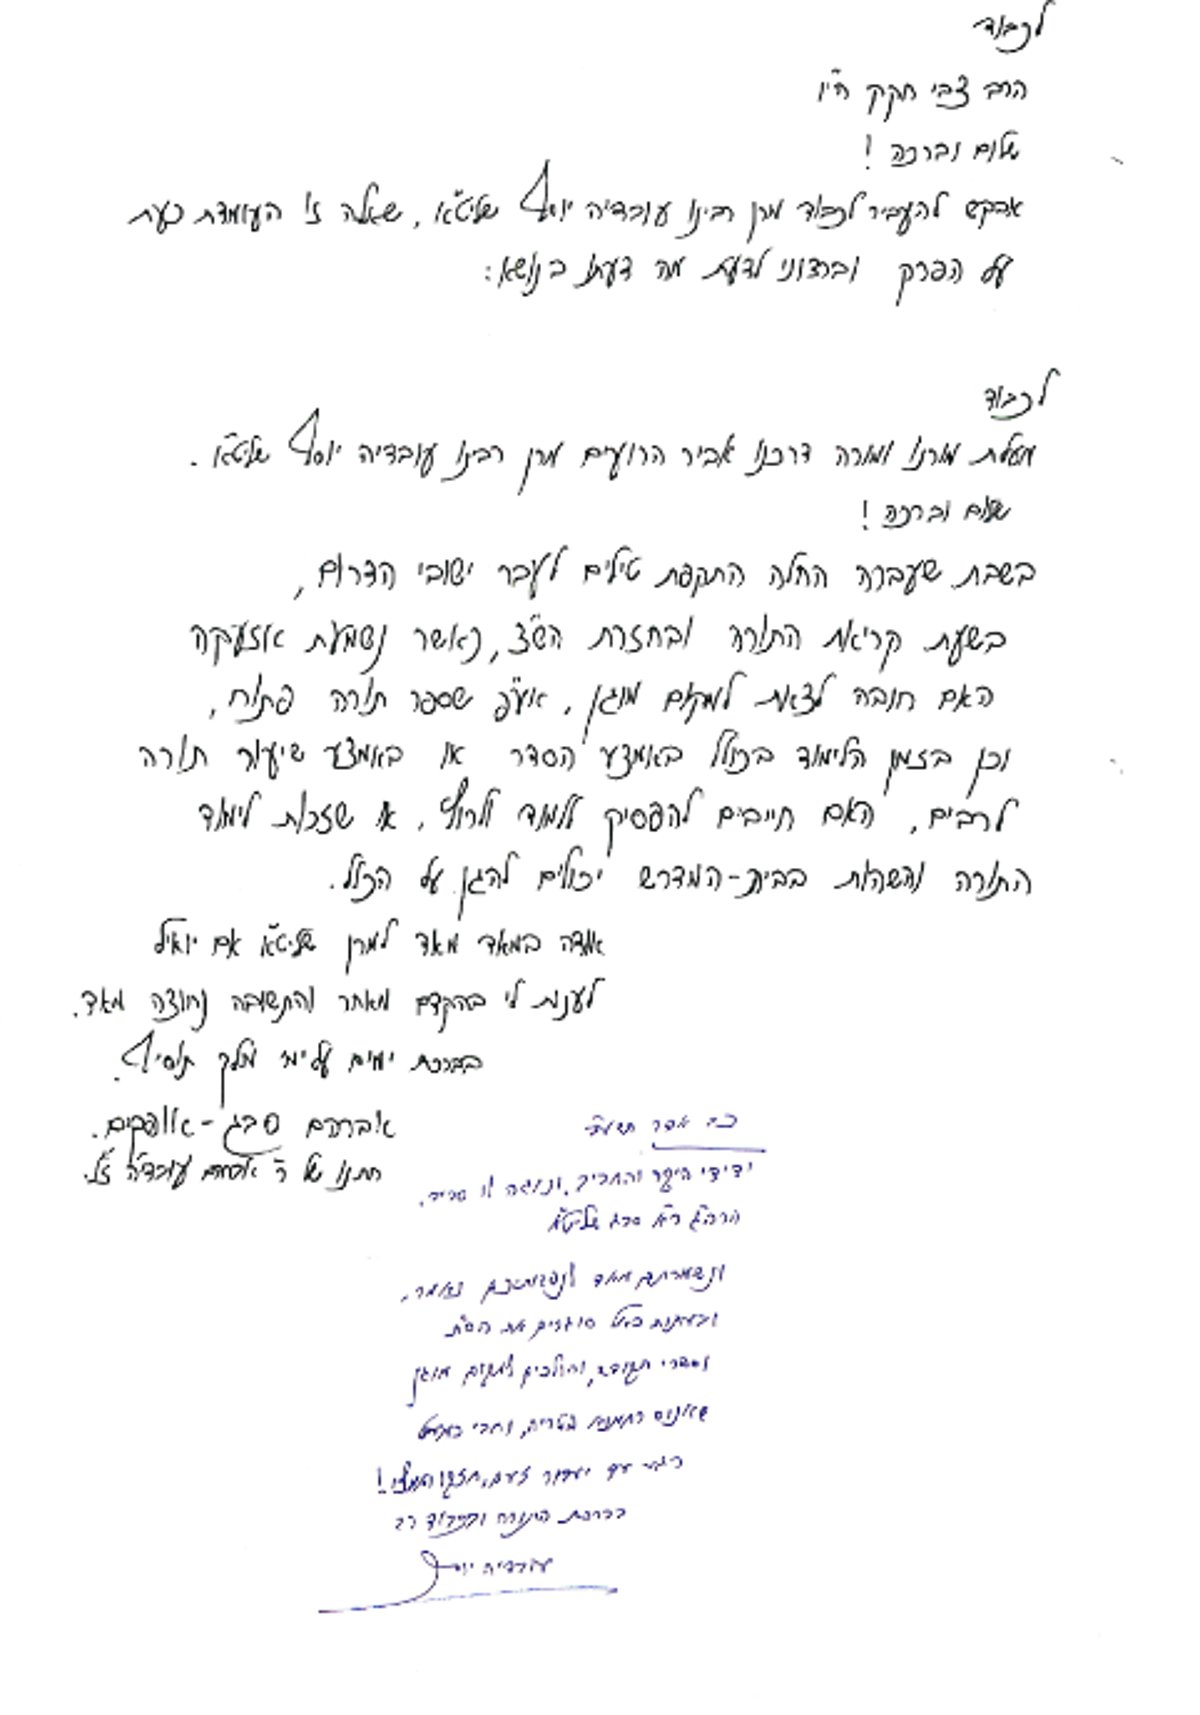 לכבוד
הרב צבי חקק הי"ו
שלום וברכה !
אבקש להעביר לכבוד מרן רבינו עובדיה יוסף שליט"א, שאלה זו העומדת כעת
על הפרק וברצוני לדעת מה דעתו בנושא :
לכבוד
מעלת מורנו ומורה דרכנו אביר הרועים מרן רבינו עובדיה יוסף שליט"א .
שלום וברכה !
בשבת שעברה החלה התקפת טילים לעבר ישובי הדרום,
בשעת קריאת התורה ובחזרת הש"צ, כאשר נשמעת אזעקה
האם חובה לצאת למקום מוגן, אע"פ שספר תורה פתוח,
וכן בזמן הלימוד בכולל באמצע הסדר או באמצע שיעור תורה
לרבים, האם חייבים להפסיק ללמוד ולרוץ, או שזכות לימוד
התורה והשהות בבית-המדרש יכולים להגן על הכלל.
אודה במאד מאד למרן שליט"א אם יואיל
לענות לי בהקדם מאחר והתשובה נחוצה מאד.
בברכת ימים על ימי מלך תוסיף.
אברהם סבג - אופקים.
חתנו של ר' אפרים עובדיה ז"ל.
ידידי היקר והחביב,
הרה"ג ר"א סבג שליט"א
ונשמרתם מאד לנפשותיכם נאמר,
סוגרים את הס"ת
והולכים למקום מוגן
רגע עד יעבור זעם, חזקו ואמצו !
בברכת התורה ובכבוד רב
עובדיה יוסף